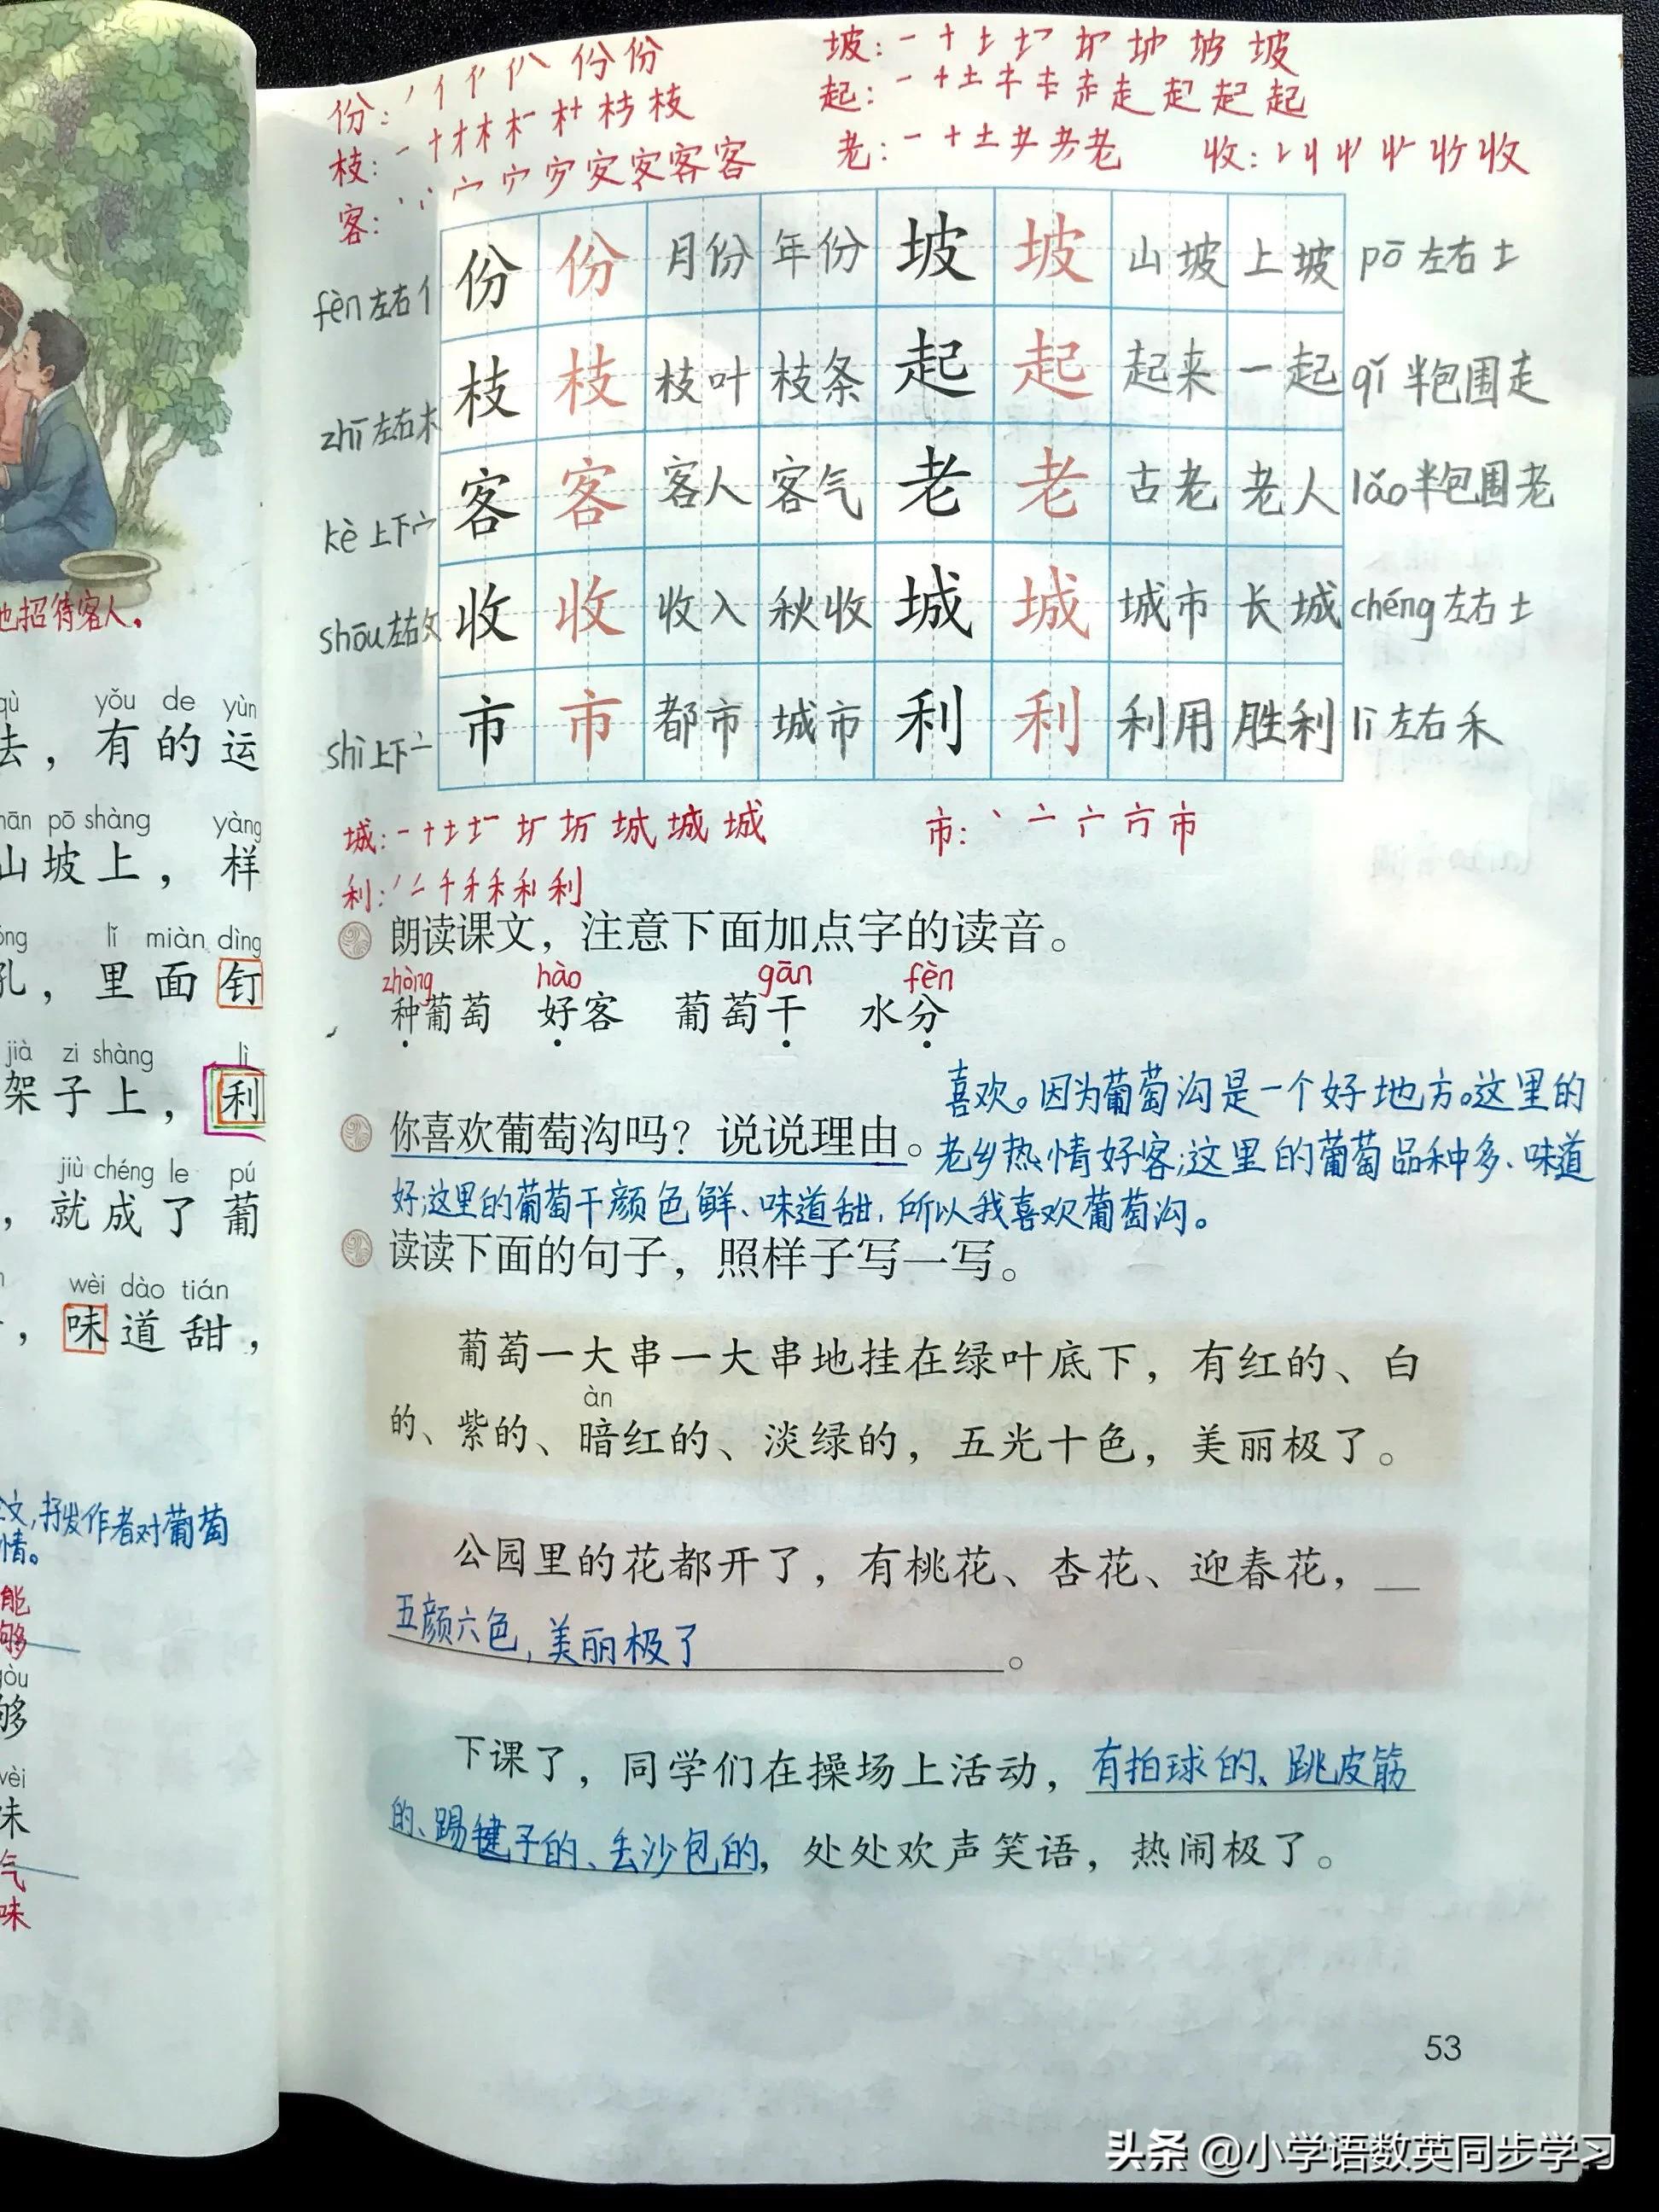 份: 份 份
枝: 枝
客: 客
坡: 一 十 土 坡
起: 一 十 土 走 起 起 起
老: 一 十 土 老
收: 收 收
fèn 左右 亻 份 份 月份 年份 坡 坡 山坡 上坡 pō 左右 土
zhī 左右 木 枝 枝 枝叶 枝条 起 起 起来 一起 qǐ 半包围 走
kè 上下 宀 客 客 客人 客气 老 老 古老 老人 lǎo 半包围 老
shōu 左右 攵 收 收 收入 秋收 城 城 城市 长城 chéng 左右 土
shì 上下 亠 市 市 都市 城市 利 利 利用 胜利 lì 左右 禾
城: 一 十 土 城 城 城
市: 丶 亠 市
利: 千 禾 利
朗读课文，注意下面加点字的读音。
zhòng hào gān fèn
种葡萄 好客 葡萄干 水分
喜欢。因为葡萄沟是一个好地方。这里的
你喜欢葡萄沟吗？说说理由。老乡热情好客;这里的葡萄品种多、味道
好;这里的葡萄干颜色鲜、味道甜,所以我喜欢葡萄沟。
读读下面的句子，照样子写一写。
葡萄一大串一大串地挂在绿叶底下，有红的、白
àn
的、紫的、暗红的、淡绿的，五光十色，美丽极了。
公园里的花都开了，有桃花、杏花、迎春花，
五颜六色,美丽极了。
下课了，同学们在操场上活动，有拍球的、跳皮筋
的、踢毽子的、丢沙包的，处处欢声笑语，热闹极了。
53
地招待客人。
qù yǒu de yùn
去，有的运
pō shàng yàng
山坡上，样
lǐ miàn dìng
孔，里面钉
jià zi shàng lì
架子上，利
jiù chéng le pú
，就成了葡
wèi dào tián
，味道甜，
文,抒发作者对葡萄
情。
能
够
gòu
够
wèi
味
气
味
头条 @小学语数英同步学习